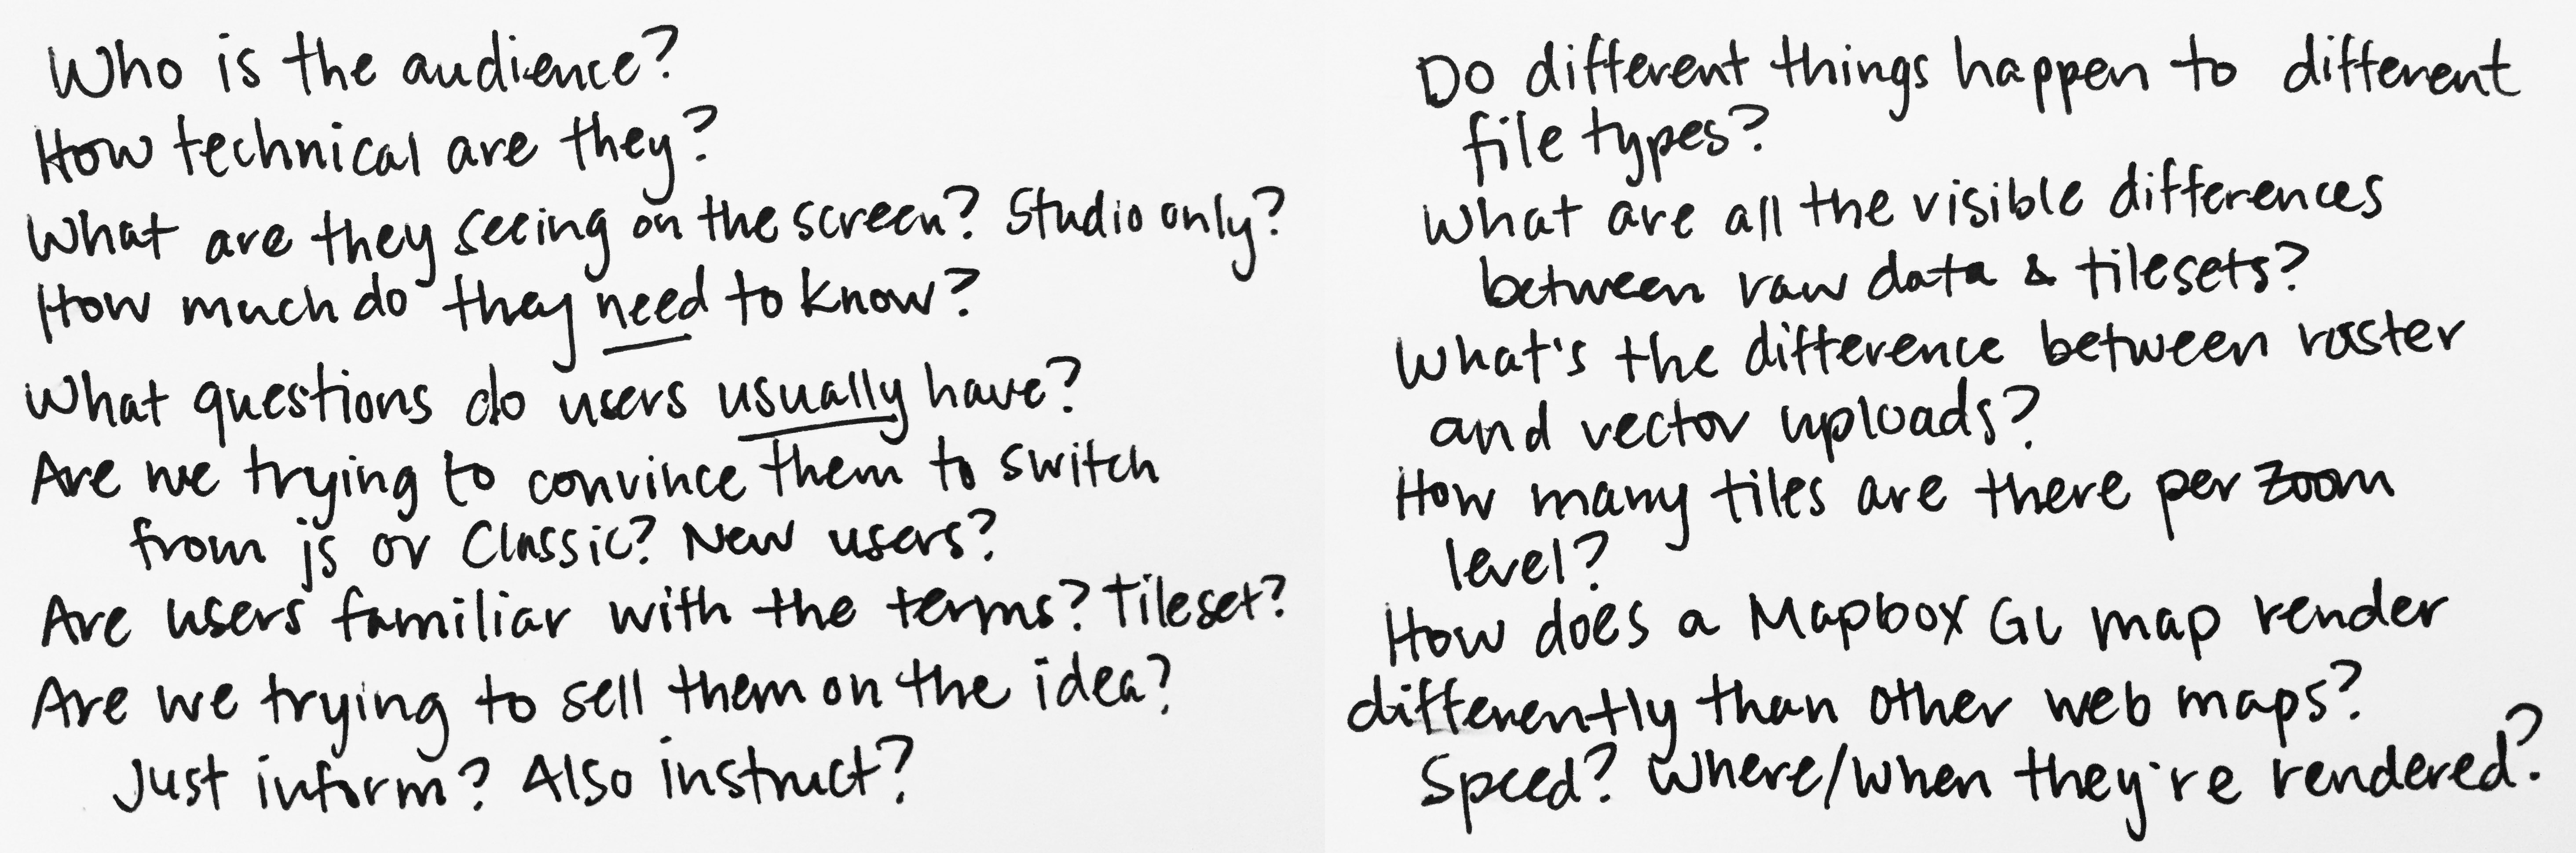 Who is the audience?
How technical are they?
What are they seeing on the screen? Studio only?
How much do they need to know?
What questions do users usually have?
Are we trying to convince them to switch
from js or Classic? New users?
Are users familiar with the terms? Tileset?
Are we trying to sell them on the idea?
Just inform? Also instruct?
Do different things happen to different
file types?
What are all the visible differences
between raw data & tilesets?
What's the difference between raster
and vector uploads?
How many tiles are there per zoom
level?
How does a Mapbox GL map render
differently than other web maps?
Speed? Where/when they're rendered?